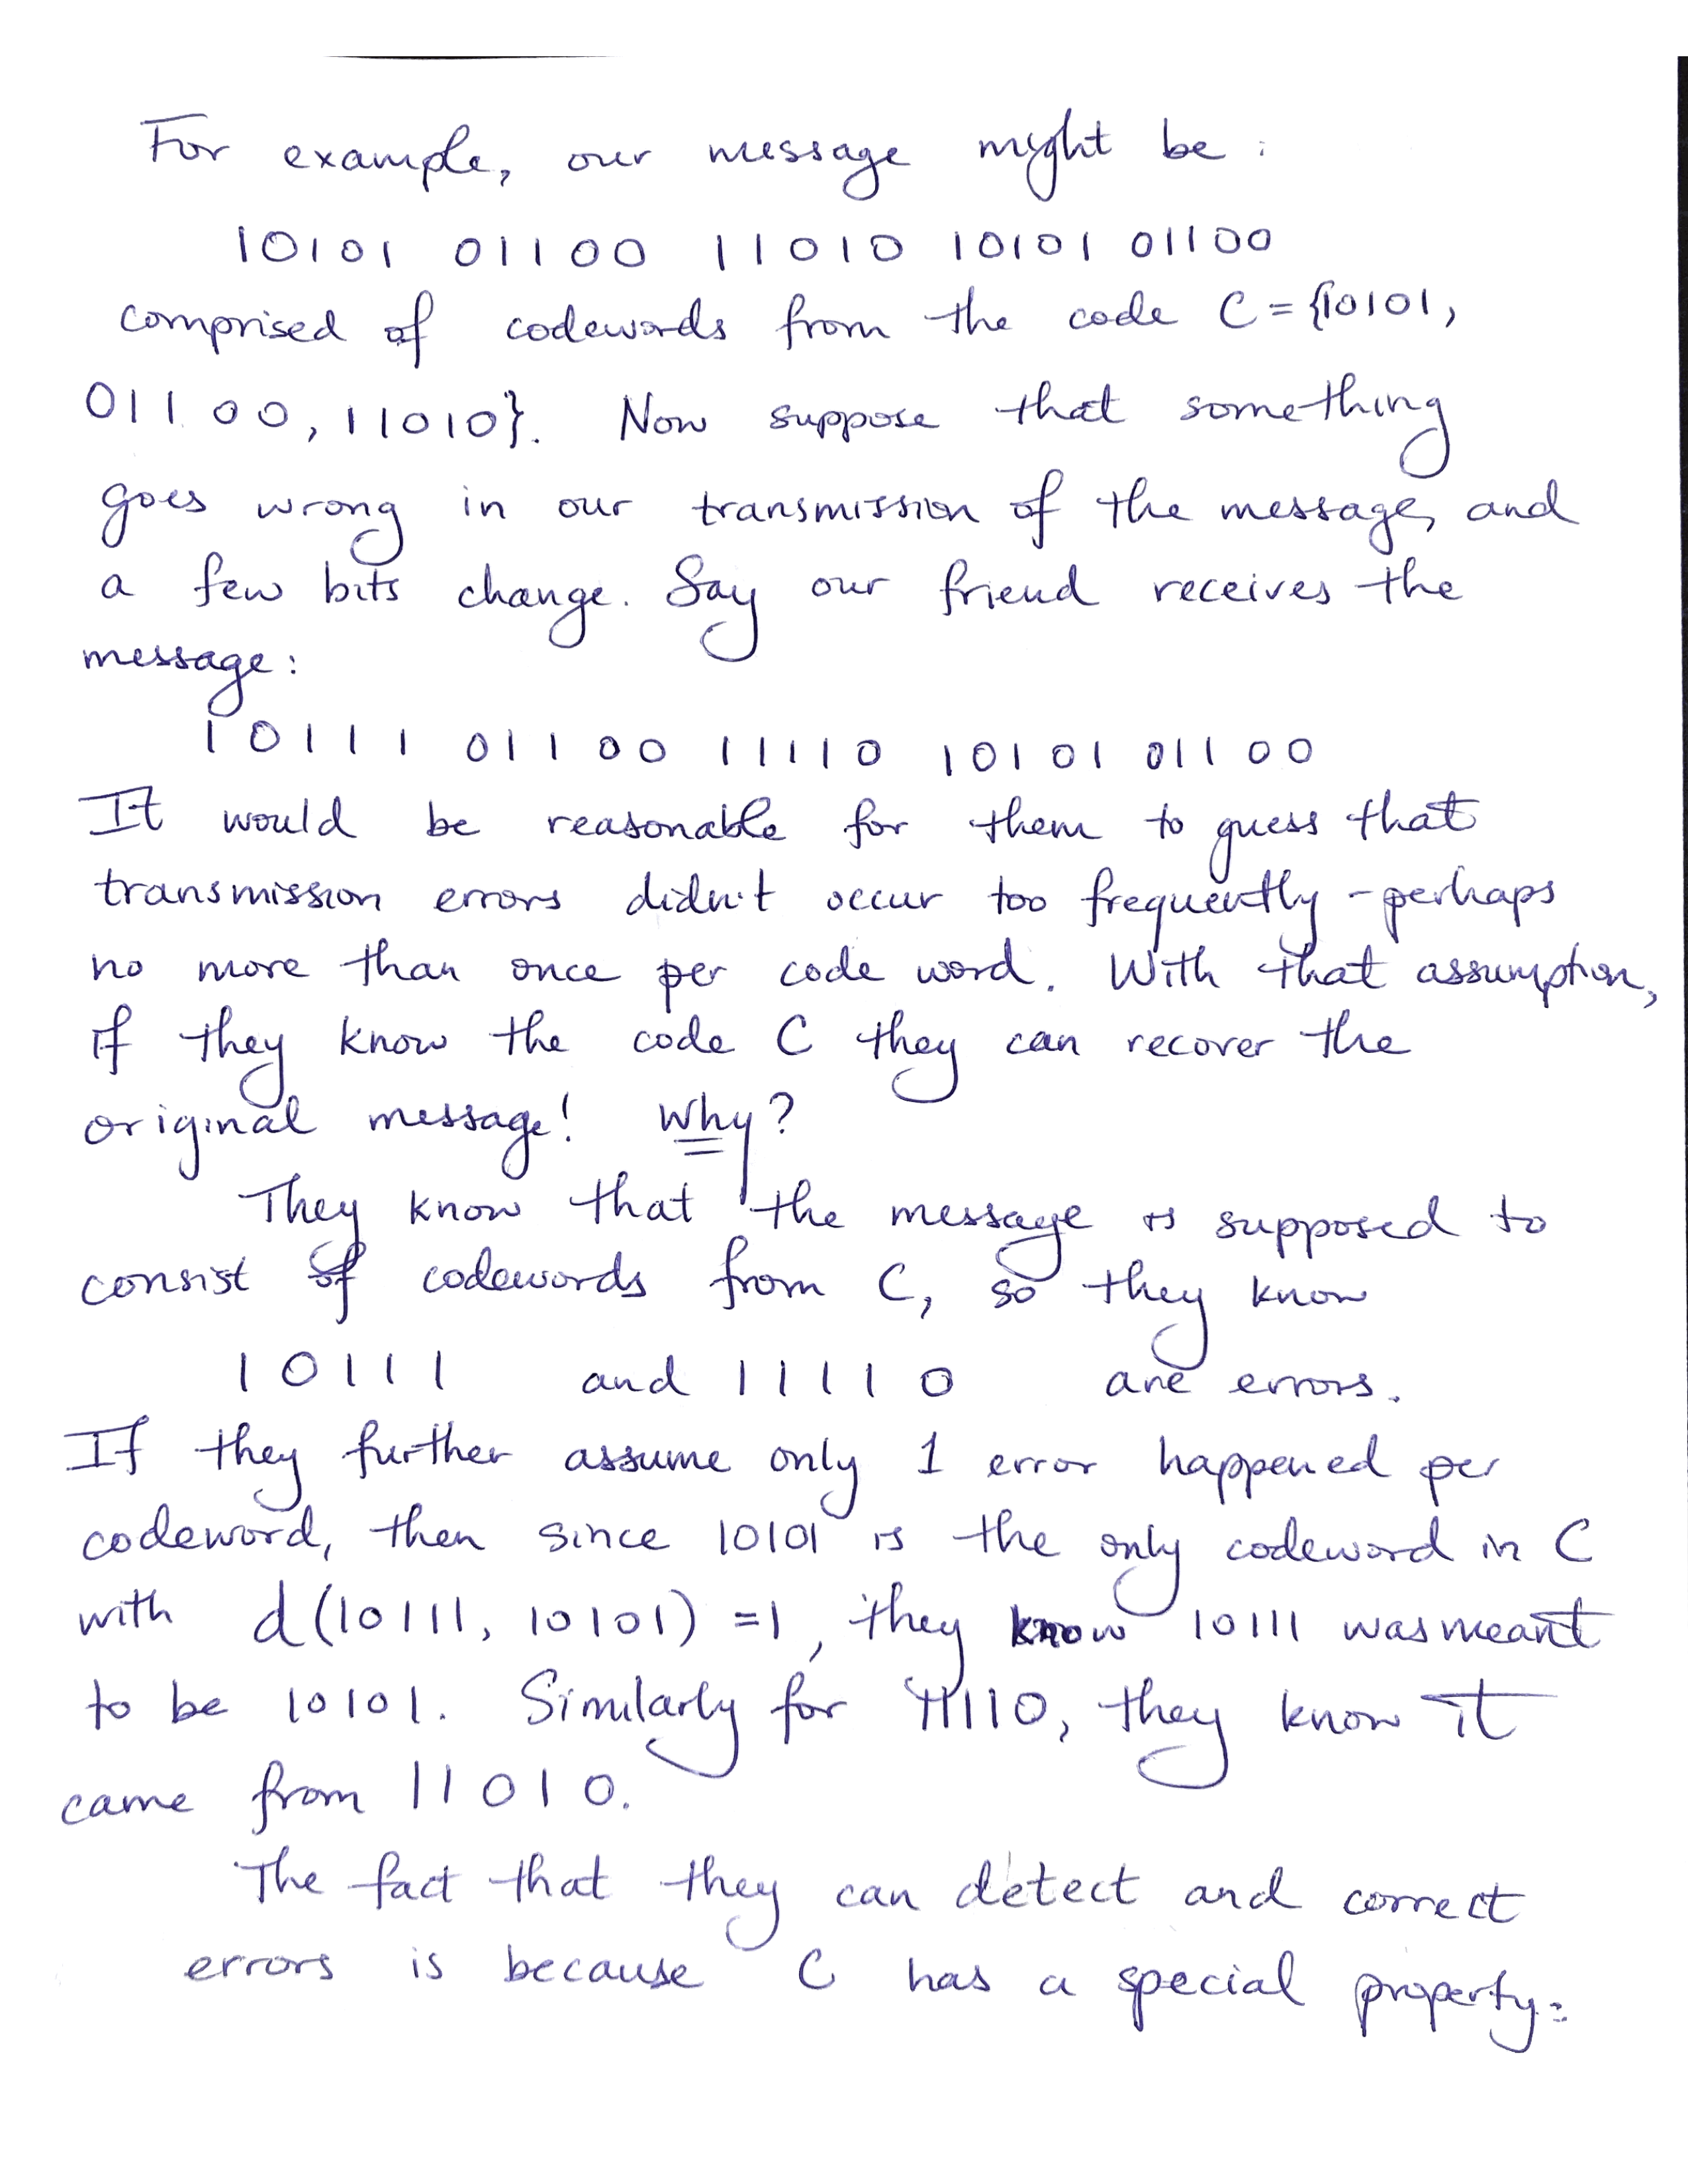 For example, our message might be:
10101 01100 11010 10101 01100
comprised of codewords from the code C = {10101,
01100, 11010}. Now suppose that something
goes wrong in our transmission of the message, and
a few bits change. Say our friend receives the
message:
10111 01100 11110 10101 01100
It would be reasonable for them to guess that
transmission errors didn't occur too frequently - perhaps
no more than once per code word. With that assumption,
if they know the code C they can recover the
original message! Why?
They know that the message is supposed to
consist of codewords from C, so they know
10111 and 11110 are errors.
If they further assume only 1 error happened per
codeword, then since 10101 is the only codeword in C
with d(10111, 10101) = 1, they know 10111 was meant
to be 10101. Similarly for 11110, they know it
came from 11010.
The fact that they can detect and correct
errors is because C has a special property: